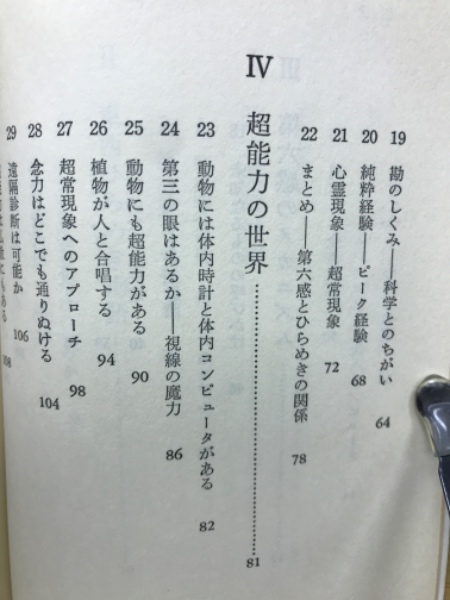 19 勘のしくみ——科学とのちがい 64
20 純粋経験——ピーク経験 68
21 心霊現象——超常現象 72
22 まとめ——第六感とひらめきの関係 78
Ⅳ 超能力の世界……………………81
23 動物には体内時計と体内コンピュータがある 82
24 第三の眼はあるか——視線の魔力 86
25 動物にも超能力がある 90
26 植物が人と合唱する 94
27 超常現象へのアプローチ 98
28 念力はどこでも通りぬける 104
29 遠隔診断は可能か 106
108